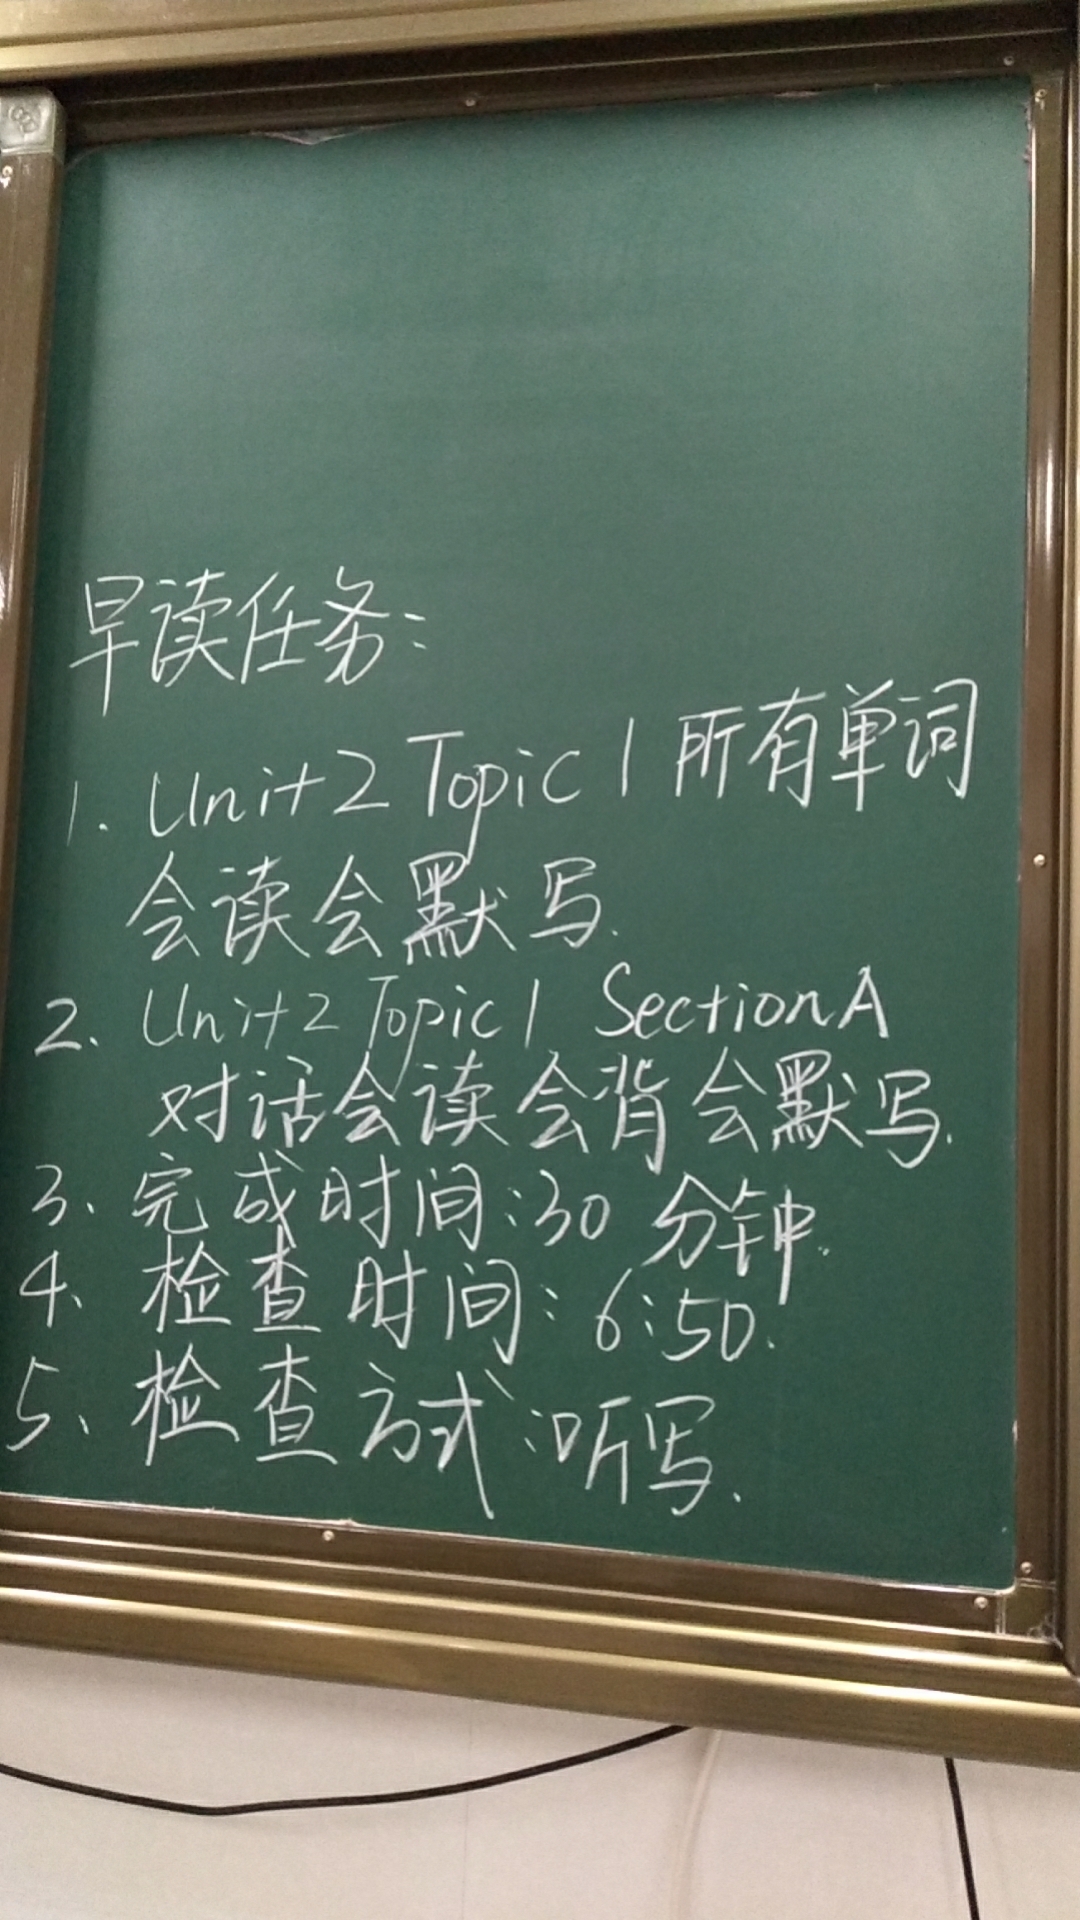 早读任务:
1. Unit 2 Topic 1 所有单词
会读会默写.
2. Unit 2 Topic 1 Section A
对话会读会背会默写.
3、完成时间:30分钟.
4、检查时间:6:50.
5、检查方式:听写.